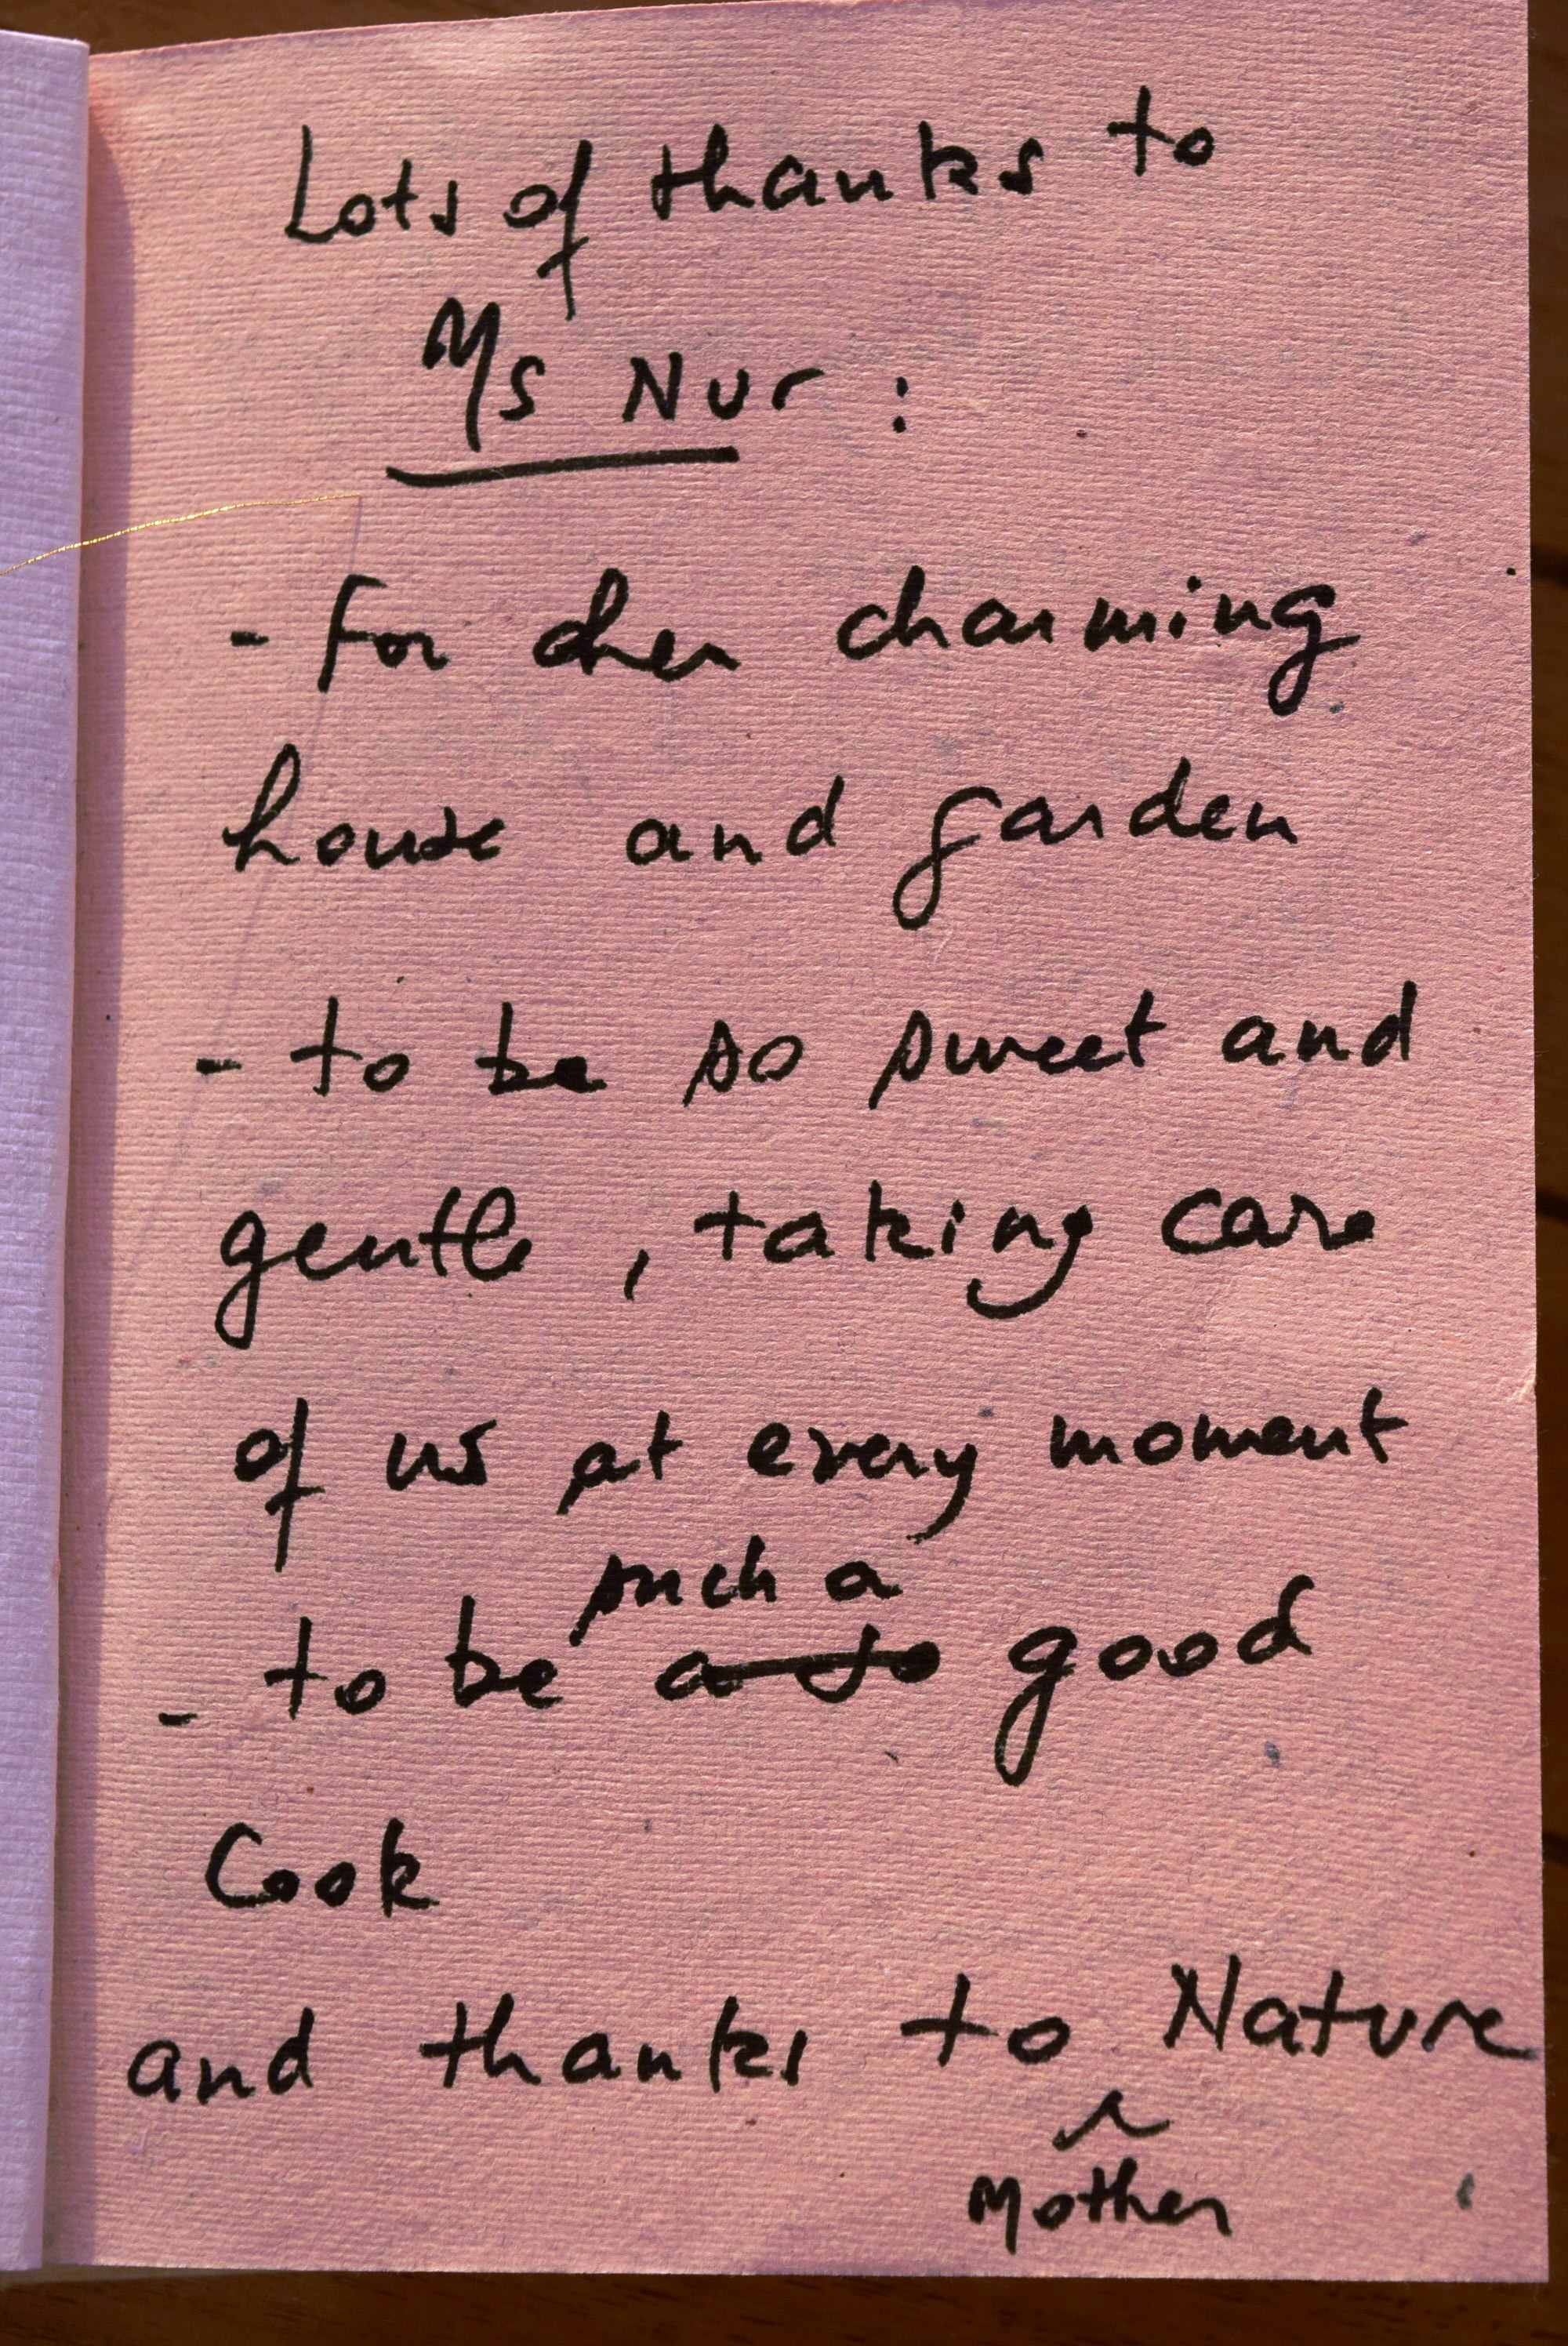 Lots of thanks to
Ms Nur :
- For her charming
house and garden
- to be so sweet and
gentle , taking care
of us at every moment
such a
- to be a so good
Cook
and thanks to Nature
Mother